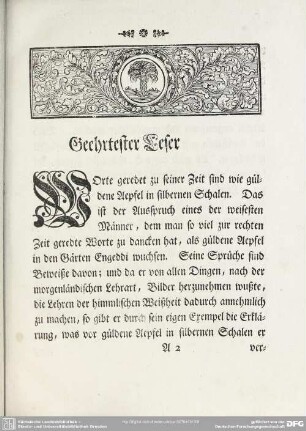 Geehrtester Leser
WOrte geredet zu seiner Zeit sind wie gül-
dene Aepfel in silbernen Schalen. Das
ist der Ausspruch eines der weisesten
Männer, dem man so viel zur rechten
Zeit geredte Worte zu dancken hat, als güldene Aepfel
in den Gärten Engeddi wuchsen. Seine Sprüche sind
Beweiße davon; und da er von allen Dingen, nach der
morgenländischen Lehrart, Bilder herzunehmen wußte,
die Lehren der himmlischen Weißheit dadurch annehmlich
zu machen, so gibt er durch sein eigen Exempel die Erklä-
rung, was vor güldene Aepfel in silbernen Schalen er
A 2 ver-
gefördert von der
Deutschen Forschungsgemeinschaft
DFG